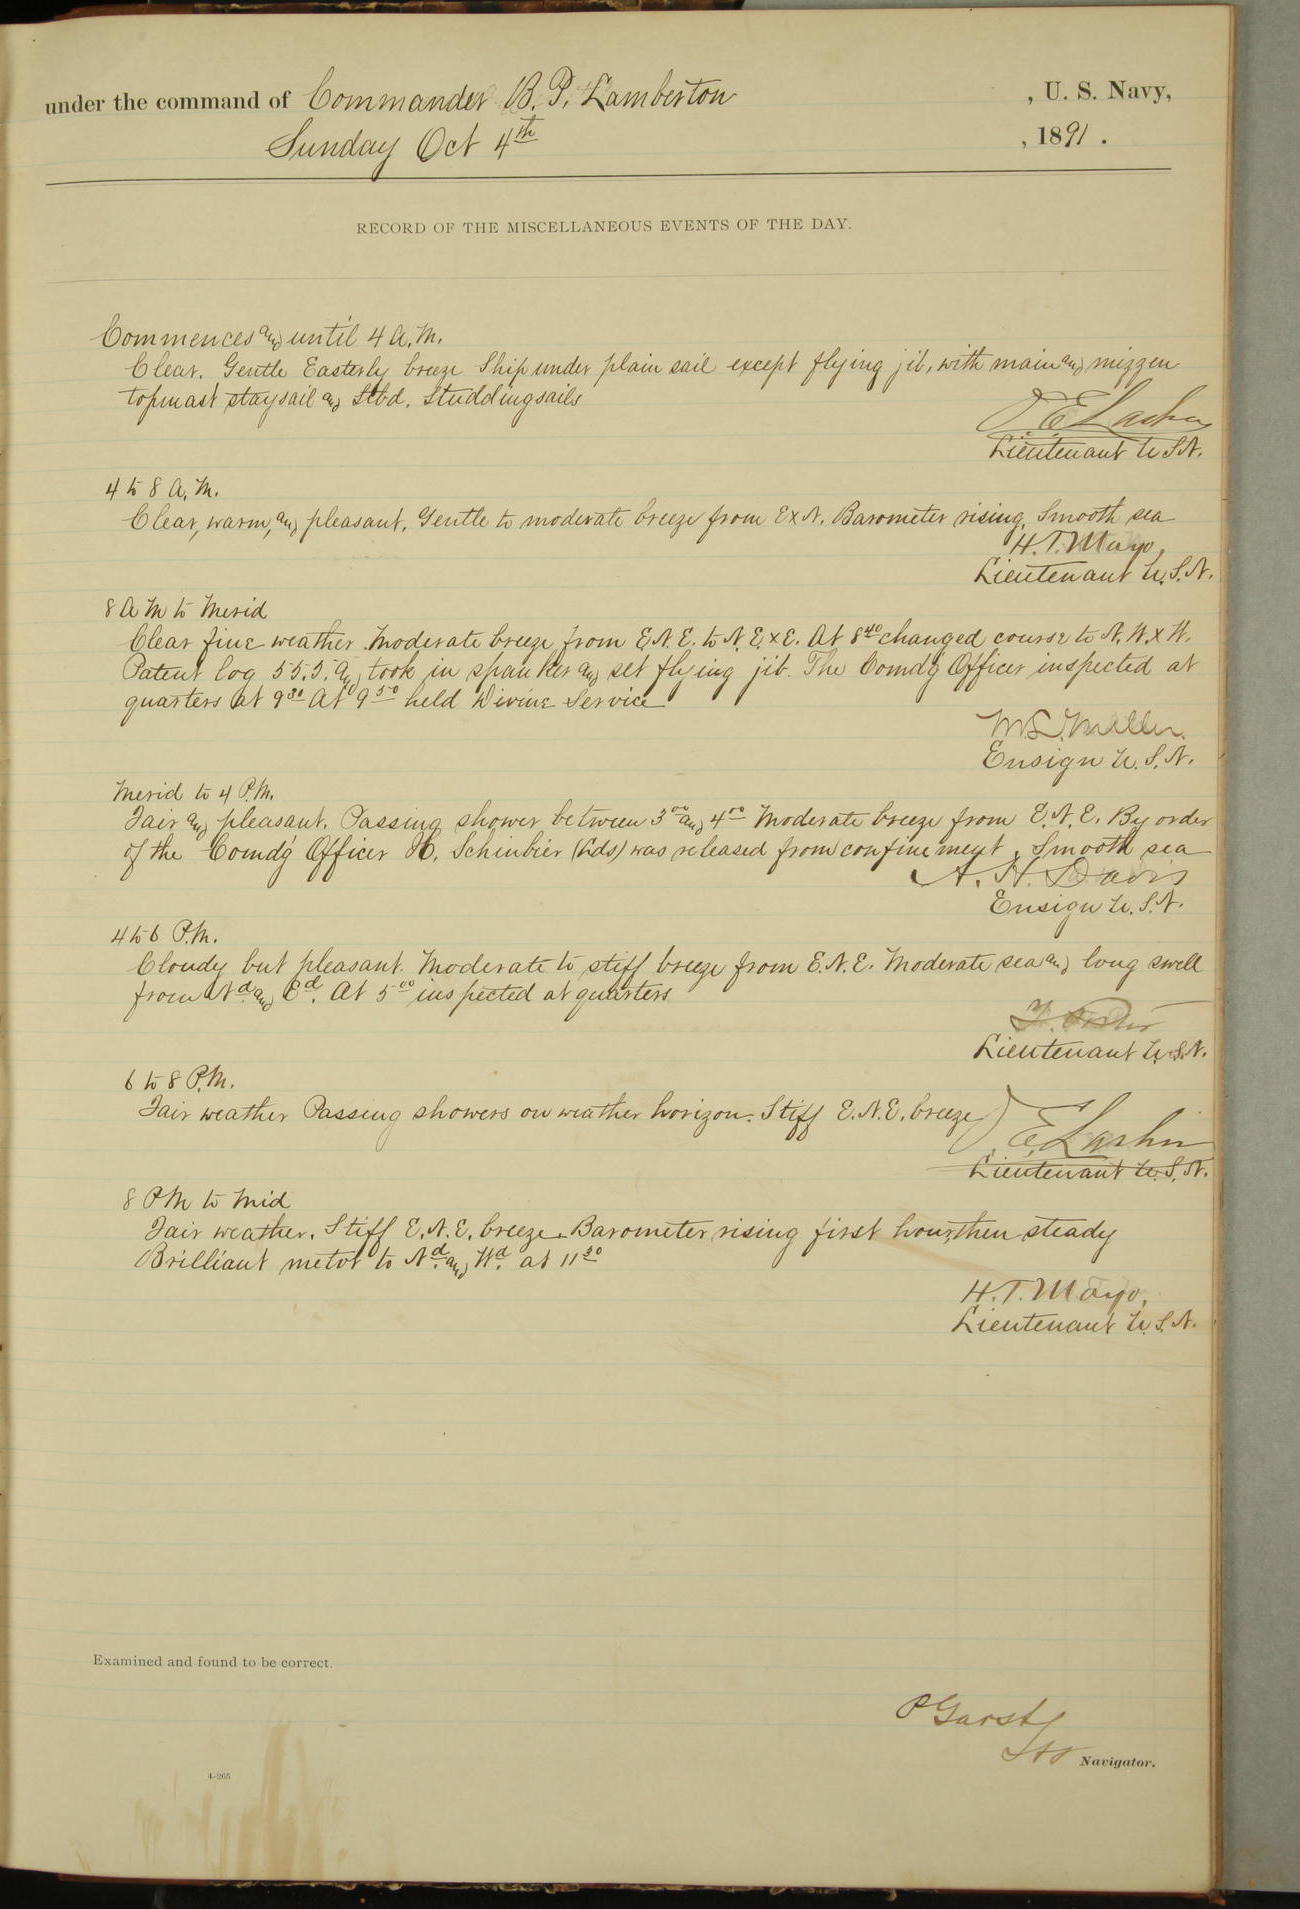 under the command of Commander B. P. Lamberton , U. S. Navy,
Sunday Oct 4th , 1891.
RECORD OF THE MISCELLANEOUS EVENTS OF THE DAY.
Commences and until 4 A.M.
Clear. Gentle Easterly breeze Ship under plain sail except flying jib, with main and mizzen
topmast staysail and Stbd. Studdingsails
Lieutenant U.S.N.
4 to 8 A.M.
Clear, warm, and pleasant. Gentle to moderate breeze from ExN. Barometer rising. Smooth sea
H. T. Mayo,
Lieutenant U.S.N.
8 AM to Merid
Clear fine weather Moderate breeze from E.N.E. to N.E.xE. At 8 40 changed course to N.W.xW.
Patent log 55.5. and took in spanker and set flying jib. The Comdg Officer inspected at
quarters at 9 30 At 9 50 held Divine Service
Ensign U.S.N.
Merid to 4 P.M.
Fair and pleasant. Passing shower between 3 00 and 4 00 Moderate breeze from E.N.E. By order
of the Comdg Officer H. Schinbier (Lds) was released from confinement. Smooth sea
A. H. Davis
Ensign U.S.N.
4 to 6 P.M.
Cloudy but pleasant. Moderate to stiff breeze from E.N.E. Moderate sea and long swell
from Nd. and Ed. At 5 00 inspected at quarters
Lieutenant U.S.N.
6 to 8 P.M.
Fair weather Passing showers on weather horizon. Stiff E.N.E. breeze
Lieutenant U.S.N.
8 PM to Mid
Fair weather. Stiff E.N.E. breeze. Barometer rising first hour, then steady
Brilliant metor to Nd. and Wd. at 11 30
H. T. Mayo,
Lieutenant U.S.N.
Examined and found to be correct.
P Garst
Navigator.
4-265